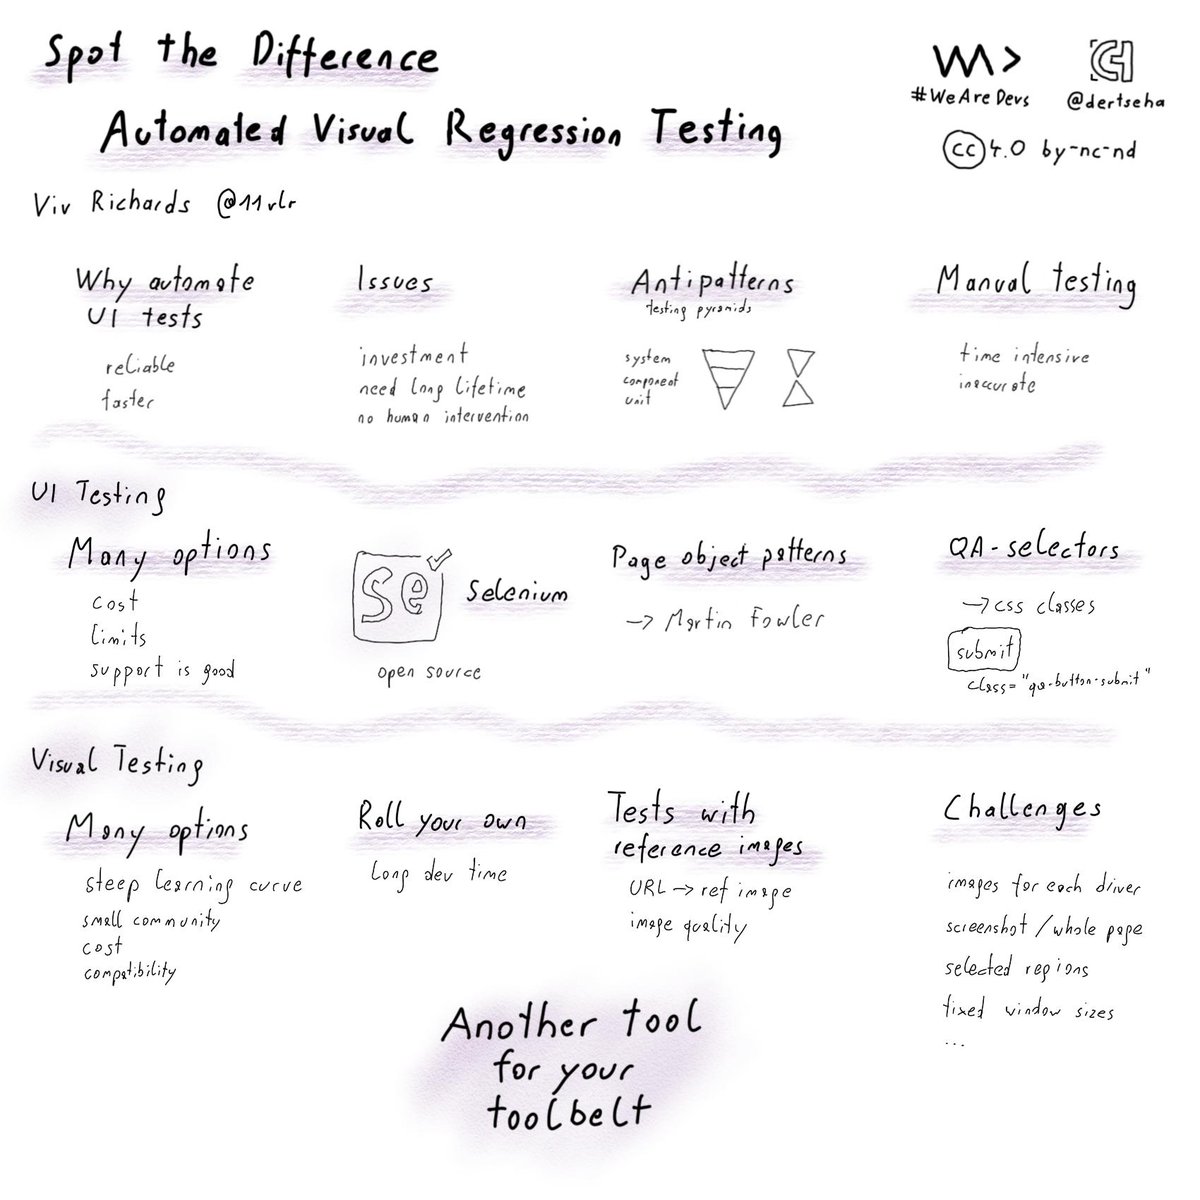 Spot the Difference
Automated Visual Regression Testing
#WeAreDevs
@dertseha
cc 4.0 by-nc-nd
Viv Richards @11vlr
Why automate
UI tests
reliable
faster
Issues
investment
need long lifetime
no human intervention
Antipatterns
testing pyramids
system
component
unit
Manual testing
time intensive
inaccurate
UI Testing
Many options
cost
limits
support is good
Se
Selenium
open source
Page object patterns
→ Martin Fowler
QA-selectors
→ css classes
submit
class="qa-button-submit"
Visual Testing
Many options
steep learning curve
small community
cost
compatibility
Roll your own
long dev time
Tests with
reference images
URL → ref image
image quality
Challenges
images for each driver
screenshot / whole page
selected regions
fixed window sizes
...
Another tool
for your
toolbelt